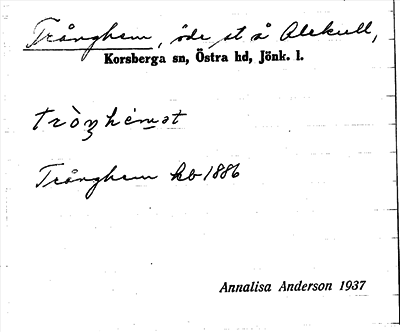 Trånghem, öde st å Alekull,
Korsberga sn, Östra hd, Jönk. l.
Trånghem kb 1886
Annalisa Anderson 1937